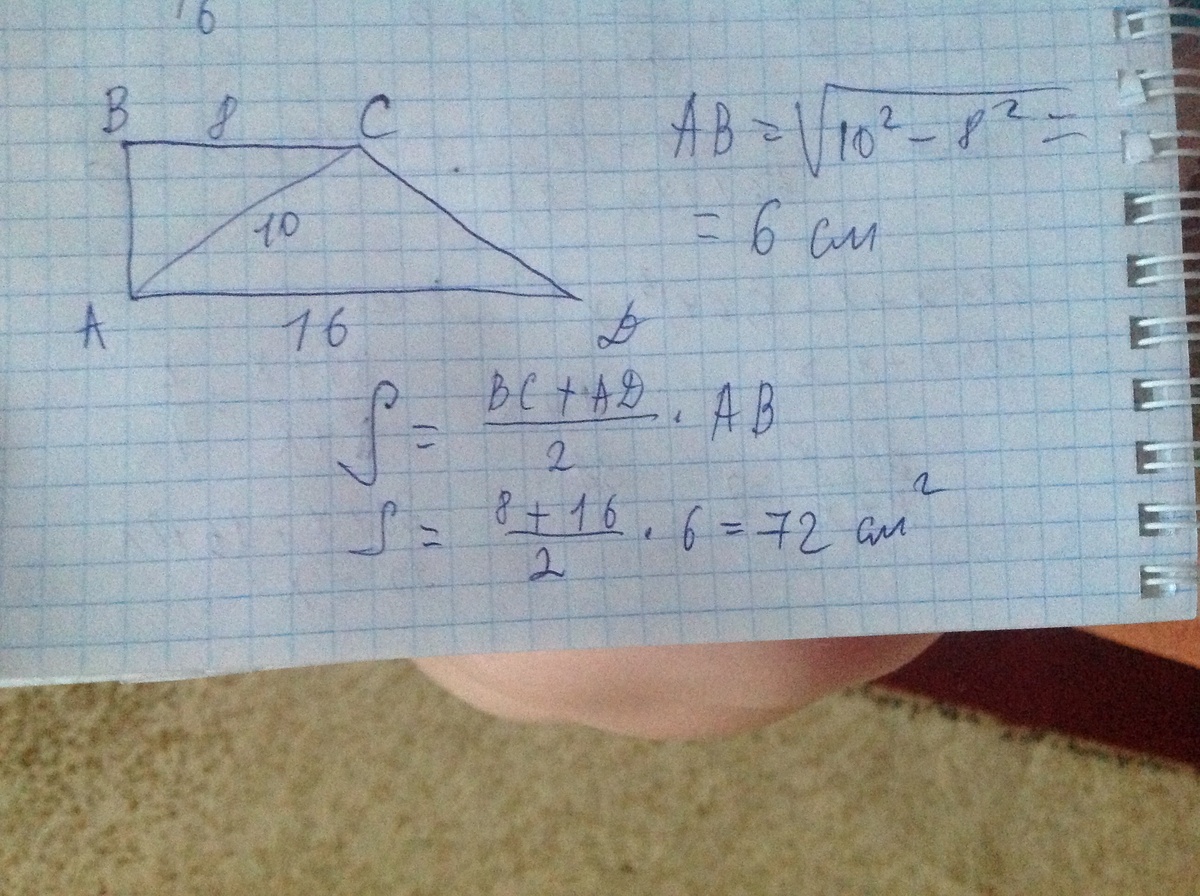 6
B 8 C
10
A 16 D
AB = √10² − 8² =
= 6 см
S = BC + AD / 2 · AB
S = 8 + 16 / 2 · 6 = 72 см²